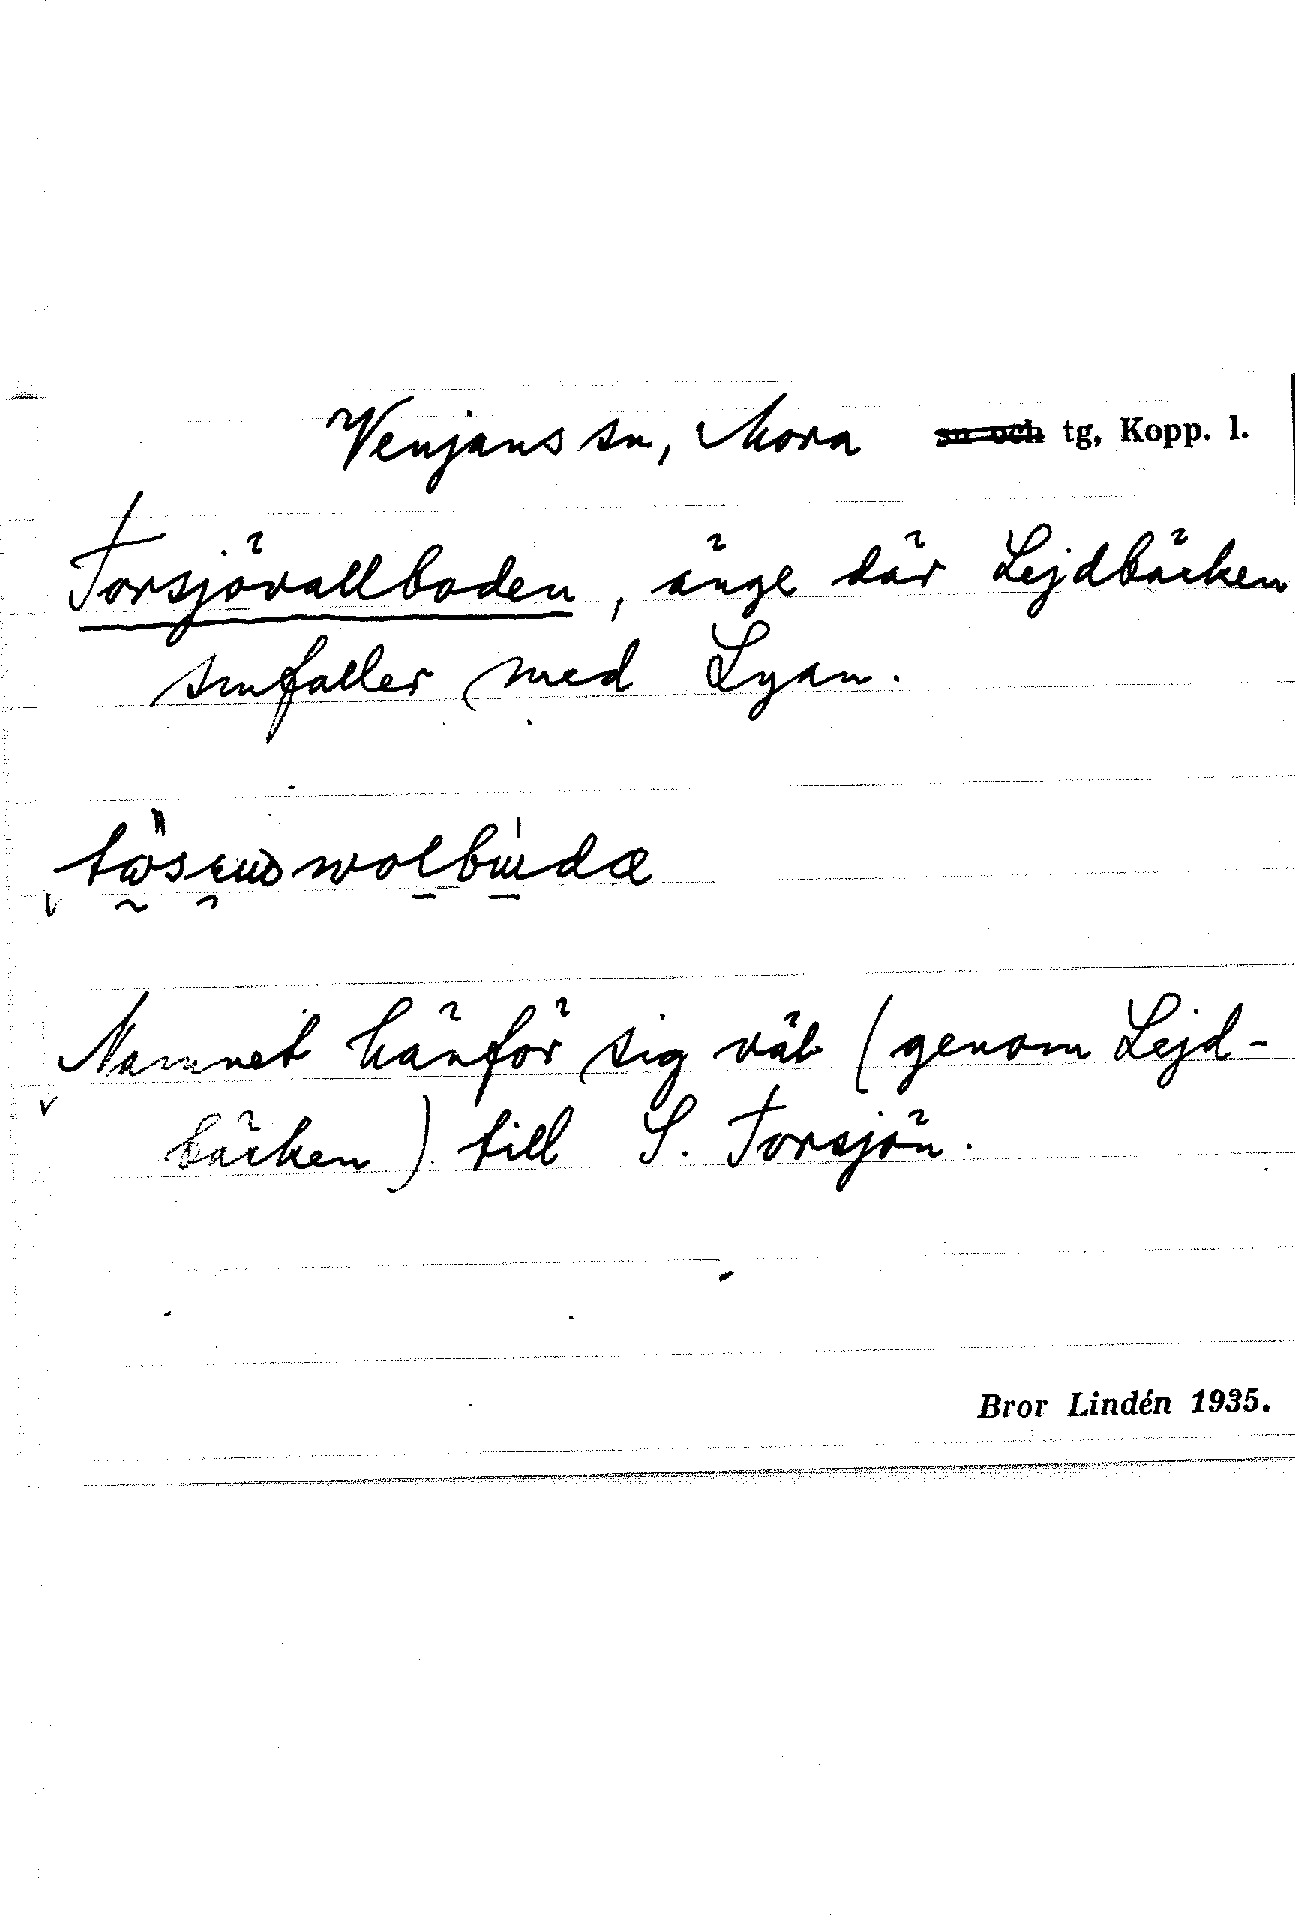 Venjans sn, Mora sn och tg, Kopp. l.
Torsjövallboden, änge där Lejdbäcken
smfaller med Lyan.
Namnet hänför sig väl (genom Lejd-
bäcken) till S. Torsjön.
Bror Lindén 1935.